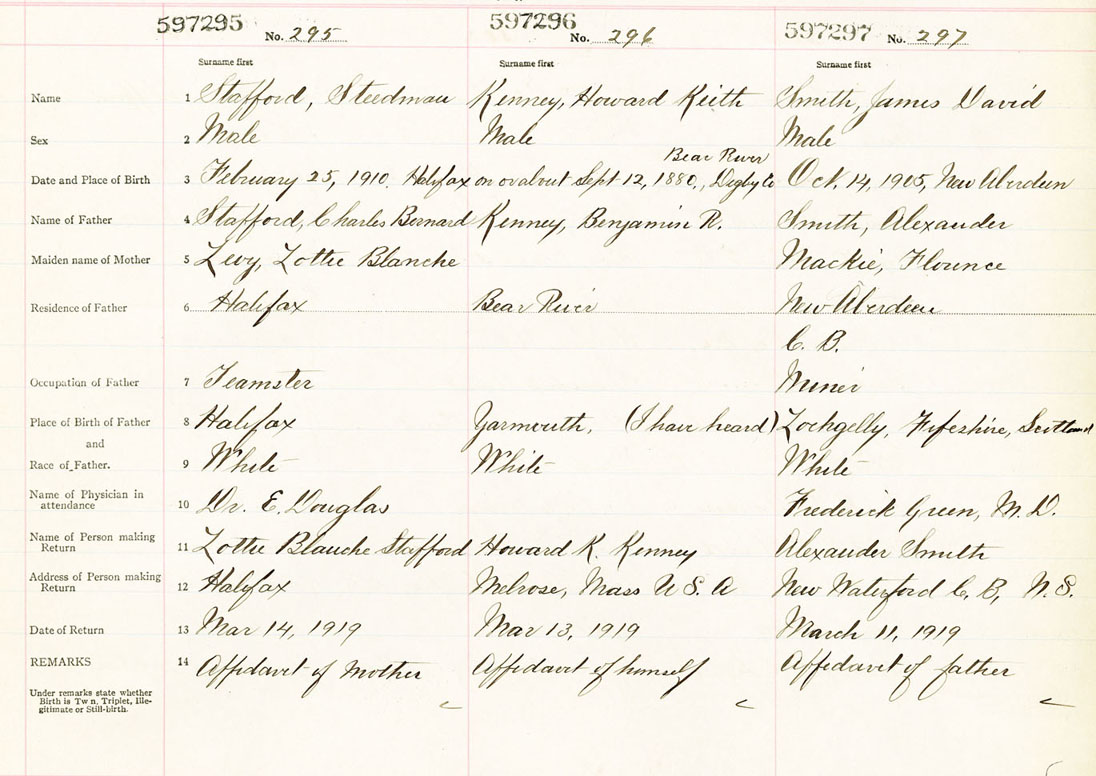 597295 No. 295 597296 No. 296 597297 No. 297
Surname first Surname first Surname first
Name 1 Stafford, Steedman Kenney, Howard Keith Smith, James David
Sex 2 Male Male Male
Bear River
Date and Place of Birth 3 February 25, 1910. Halifax on or about Sept 12, 1880, Digby Co Oct. 14, 1905, New Aberdeen
Name of Father 4 Stafford, Charles Bernard Kenney, Benjamin R. Smith, Alexander
Maiden name of Mother 5 Levy, Lottie Blanche Mackie, Flounce
Residence of Father 6 Halifax Bear River New Aberdeen
C. B.
Occupation of Father 7 Teamster Miner
Place of Birth of Father 8 Halifax Yarmouth, (I have heard) Lochgelly, Fifeshire, Scotland
and
Race of Father. 9 White White White
Name of Physician in
attendance 10 Dr. E. Douglas Frederick Green, M. D.
Name of Person making
Return 11 Lottie Blanche Stafford Howard K. Kenney Alexander Smith
Address of Person making
Return 12 Halifax Melrose, Mass U S. A New Waterford C. B, N. S.
Date of Return 13 Mar 14, 1919 Mar 13, 1919 March 11, 1919
REMARKS 14 Affidavit of Mother Affidavit of himself Affidavit of father
Under remarks state whether
Birth is Tw n, Triplet, Ille-
gitimate or Still-birth.